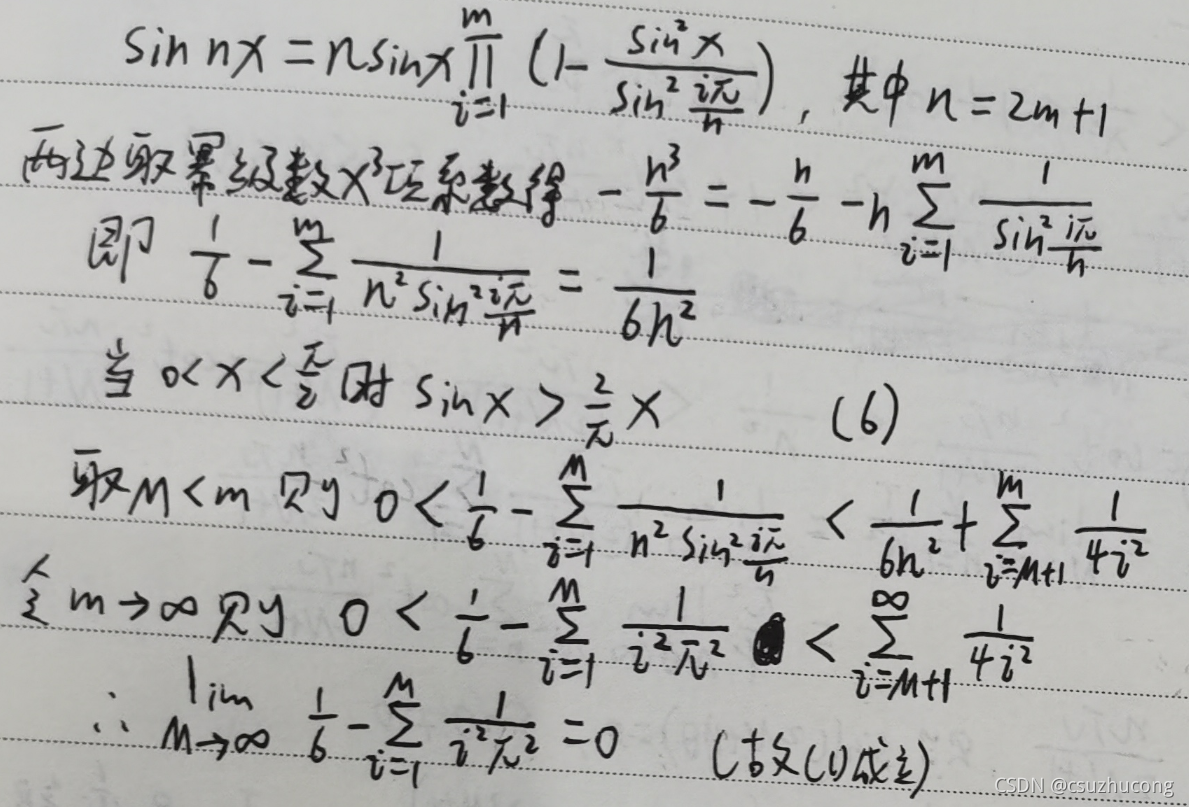 sin nx = n sinx ∏_{i=1}^{m} (1 - sin²x / sin² (iπ/n)) , 其中 n = 2m+1
两边取幂级数x³项系数得 - n³/6 = - n/6 - n ∑_{i=1}^{m} 1 / sin² (iπ/n)
即 1/6 - ∑_{i=1}^{m} 1 / (n² sin² (iπ/n)) = 1 / 6n²
当 0 < x < π/2 时 sin x > 2/π x (6)
取M < m 则 0 < 1/6 - ∑_{i=1}^{M} 1 / (n² sin² (iπ/n)) < 1/6n² + ∑_{i=M+1}^{m} 1/4i²
令 m → ∞ 则 0 < 1/6 - ∑_{i=1}^{M} 1 / i²π² < ∑_{i=M+1}^{∞} 1/4i²
∴ lim_{M→∞} 1/6 - ∑_{i=1}^{M} 1 / i²π² = 0 (故(1)成立)
CSDN @csuzhucong